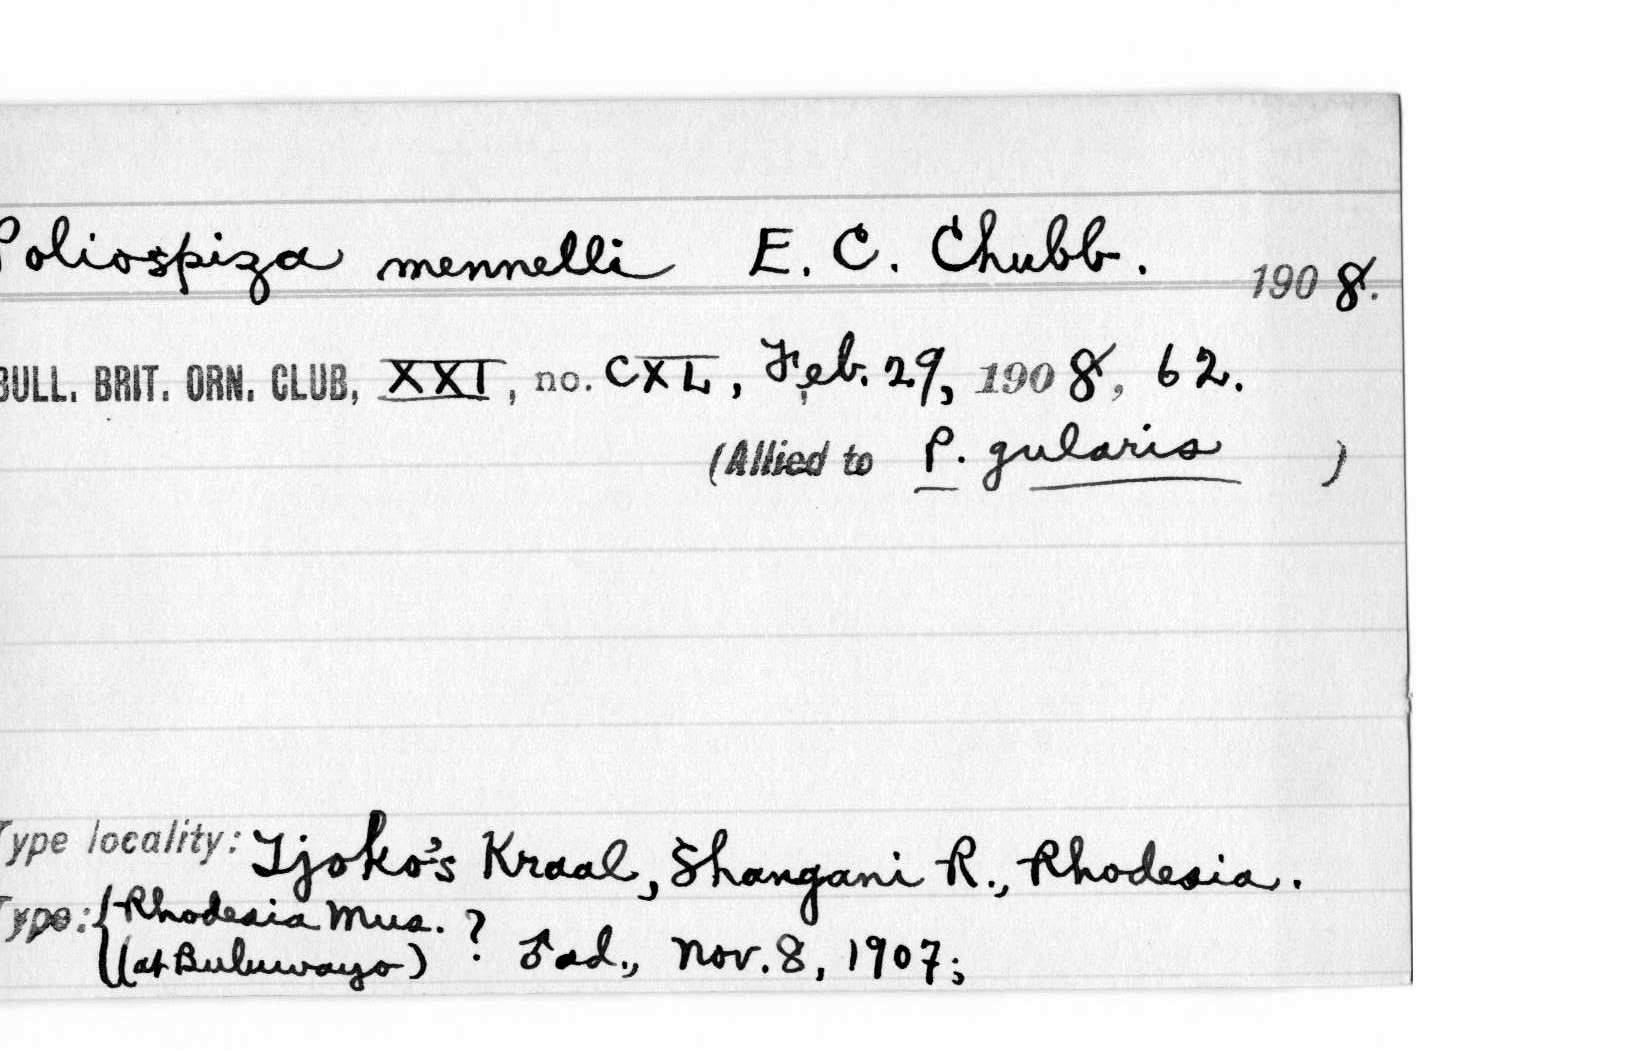 Poliospiza mennelli E. C. Chubb. 1908.
BULL. BRIT. ORN. CLUB, XXI, no. CXL, Feb. 29, 1908, 62.
(Allied to P. gularis )
Type locality: Tjoko's Kraal, Shangani R., Rhodesia.
Type: {Rhodesia Mus. ?
(at Buluwayo) ♂ ad., Nov. 8, 1907;